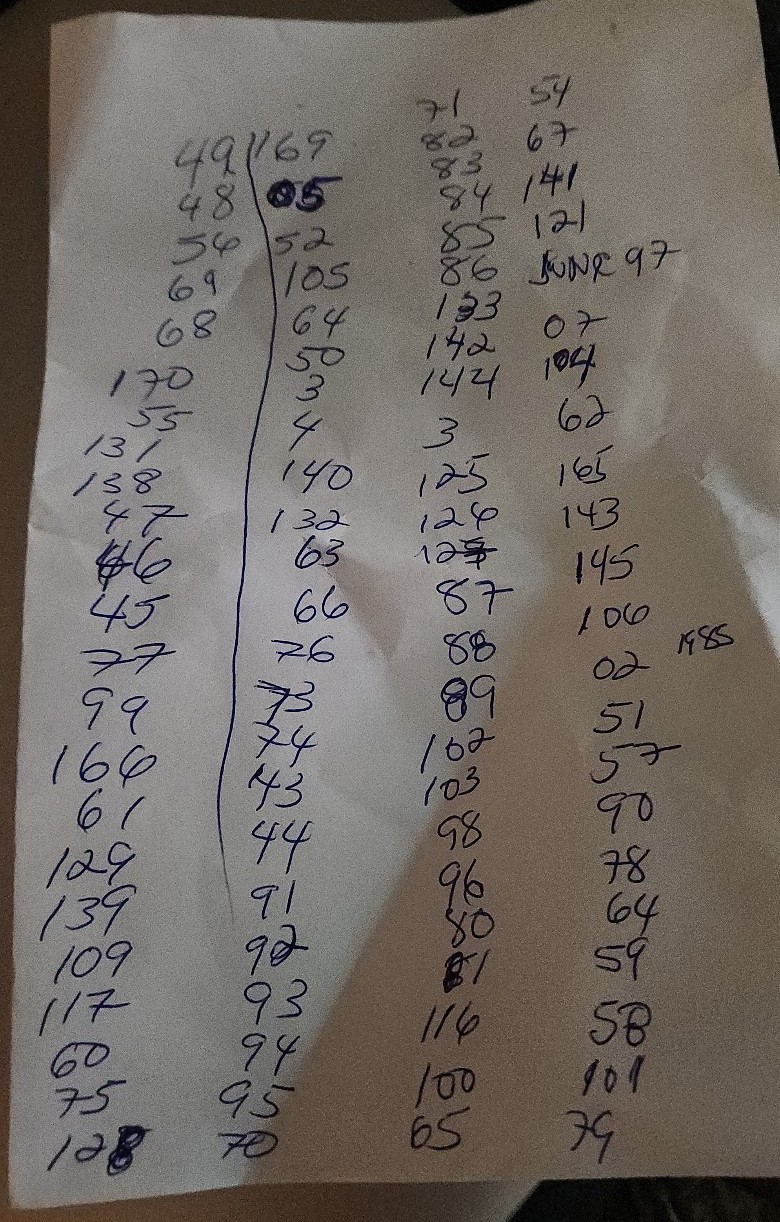 49
48
56
69
68
170
55
131
138
47
46
45
77
99
166
61
129
139
109
117
60
75
128
169
05
52
105
64
50
3
4
140
132
63
66
76
73
74
43
44
91
92
93
94
95
70
71
82
83
84
85
86
142
144
3
125
126
87
88
89
102
103
98
96
80
81
116
100
65
54
67
141
121
JUNE 97
07
104
62
165
143
145
106
02 1985
51
57
90
78
64
59
58
101
79